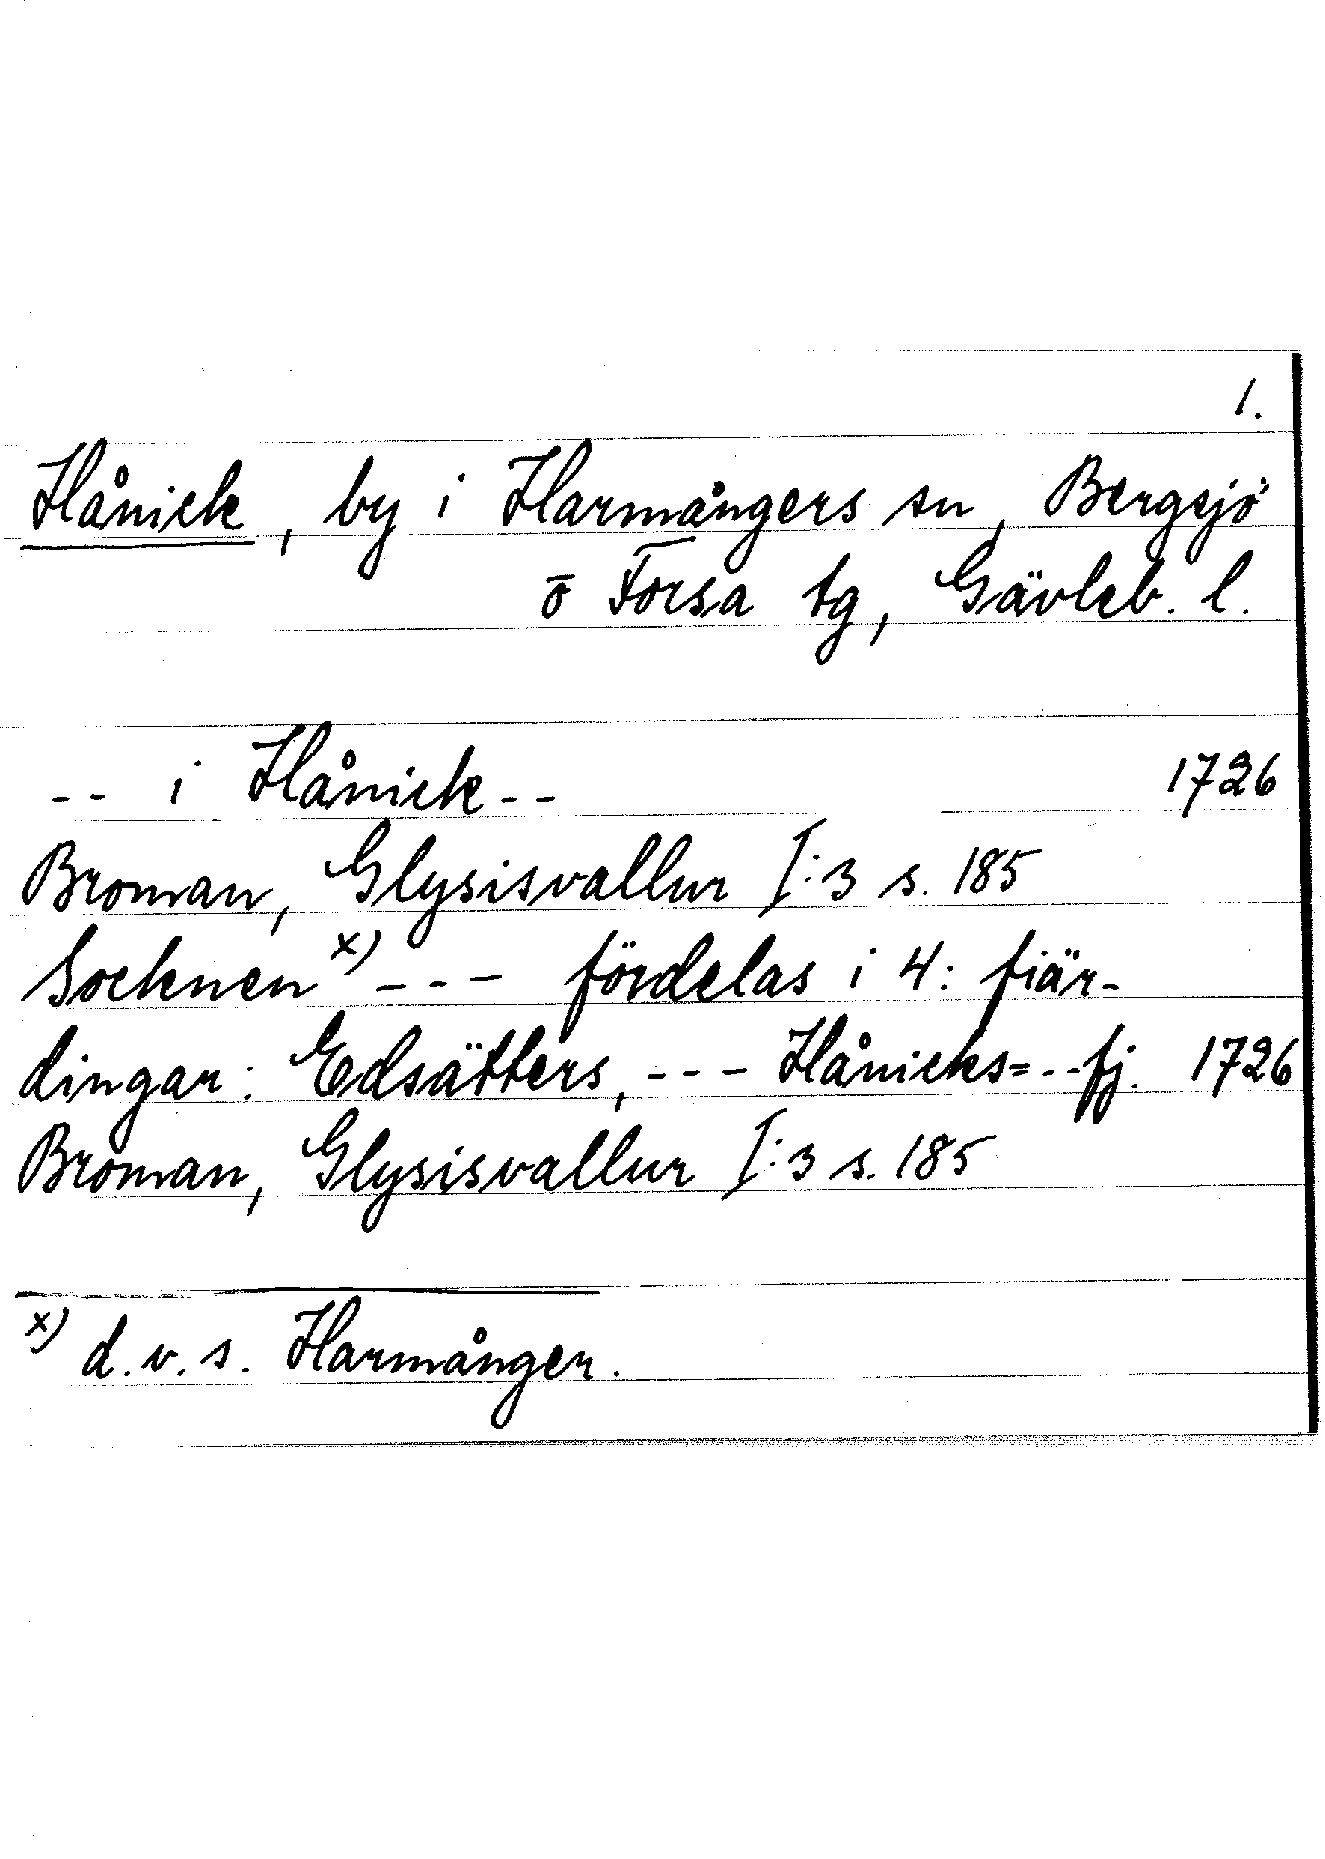 1.
Hånick, by i Harmångers sn, Bergsjö
o Forsa tg, Gävleb. l.
-- i Hånick--   1726
Broman, Glysisvallur I:3 s. 185
Socknen x) --- fördelas i 4: fiär-
dingar: Edsätters, --- Hånicks= --fj.   1726
Broman, Glysisvallur I:3 s. 185
x) d.v.s. Harmånger.